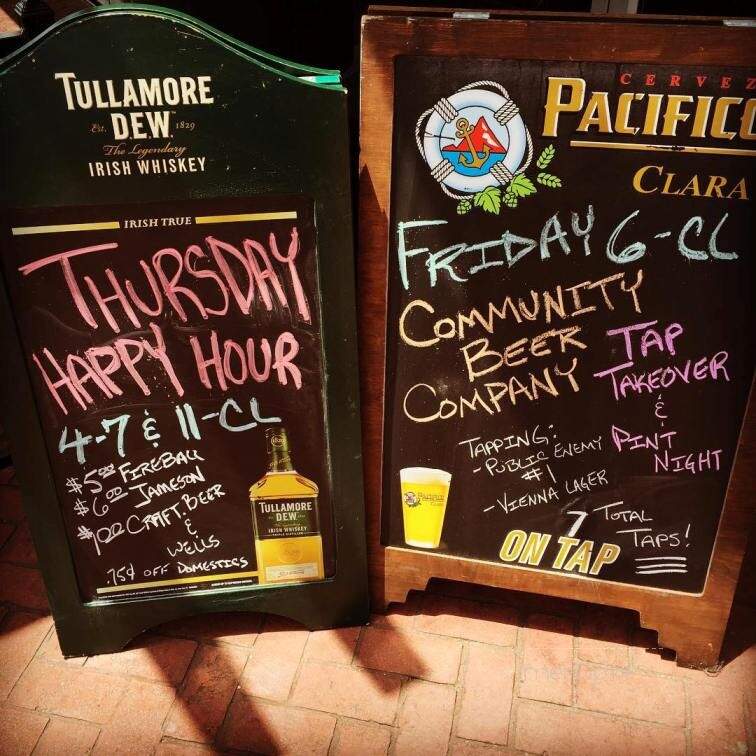 TULLAMORE
Est. DEW. 1829
The Legendary
IRISH WHISKEY
IRISH TRUE
THURSDAY
HAPPY HOUR
4-7 & 11-CL
$5.00 FIREBALL
$6.00 JAMESON
$1.00 CRAFT BEER
&
WELLS
.75¢ OFF DOMESTICS
TULLAMORE
DEW.
IRISH WHISKEY
CERVEZ
PACIFICO
CLARA
FRIDAY 6-CL
COMMUNITY
BEER
COMPANY
TAP
TAKEOVER
&
PINT
NIGHT
TAPPING:
-PUBLIC ENEMY
#1
-VIENNA LAGER
7 TOTAL
TAPS!
ON TAP